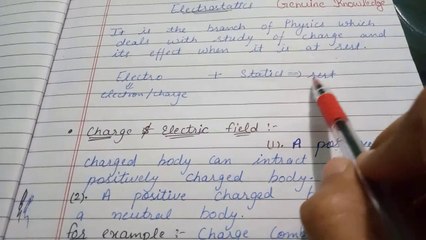 Electrostatics Genuine Knowledge
It is the branch of Physics which
deals with study of charge and
its effect when it is at rest.
Electro + Statics ⇒ rest
electron/charge
• Charge & Electric field :-
(1). A
charged body can intract
positively charged body.
(2). A positive charged
a neutral body.
for example :- Charge